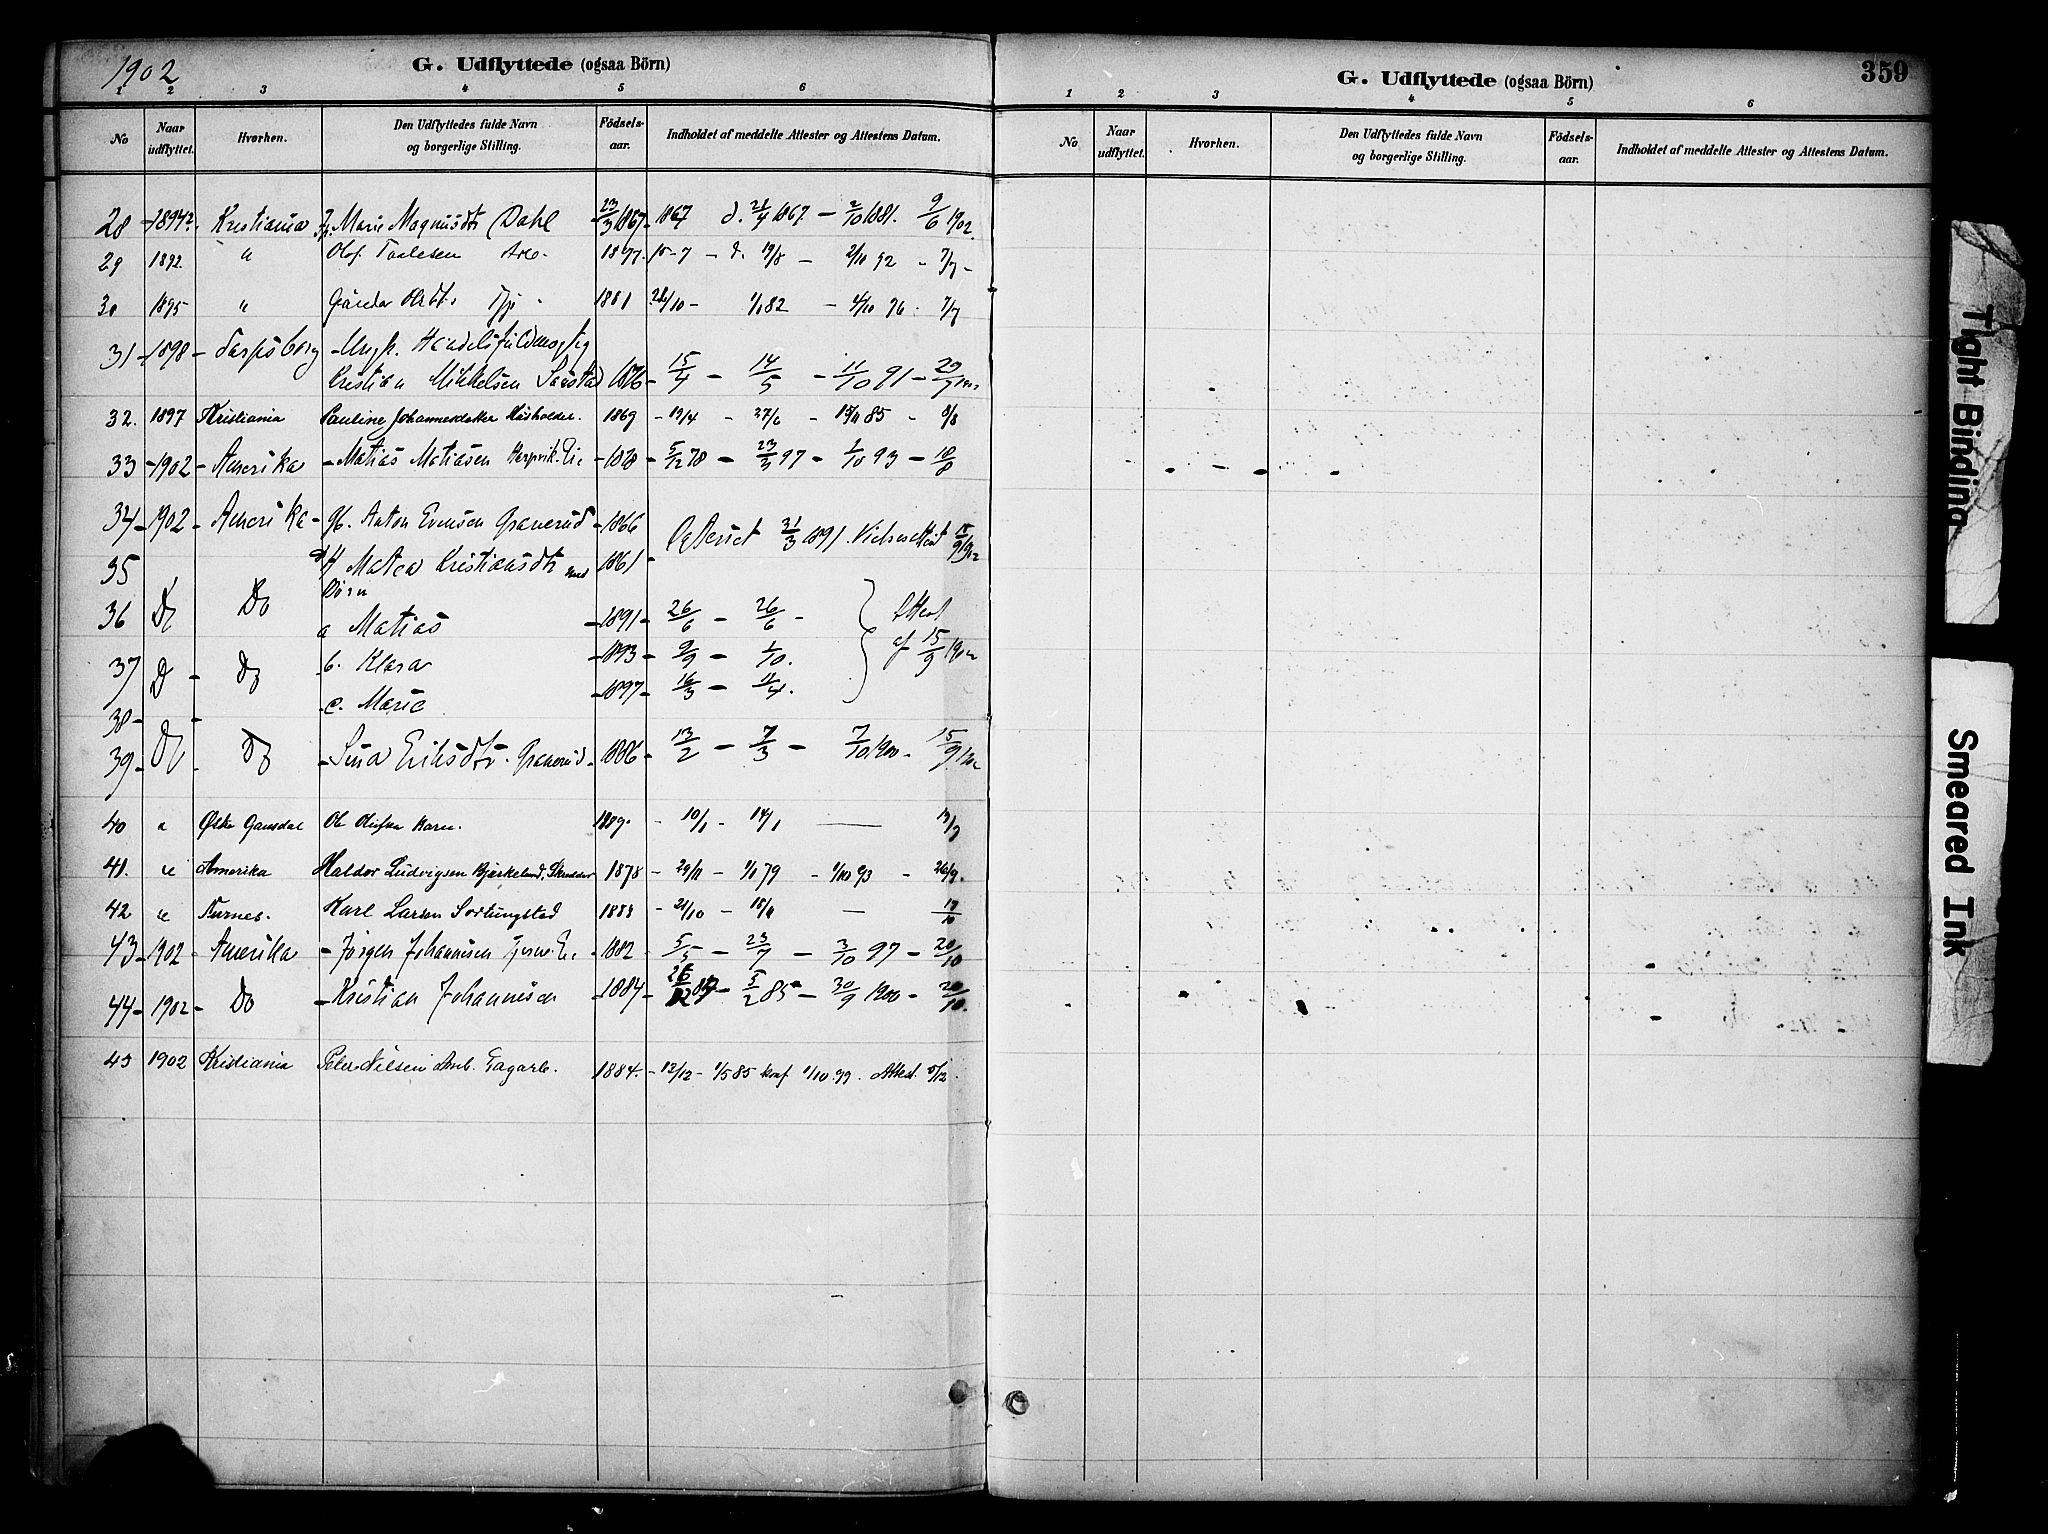 1902
G. Udflyttede (ogsaa Börn)
1 2 3 4 5 6
No Naar udflyttet. Hvorhen. Den Udflyttedes fulde Navn og borgerlige Stilling. Födselsaar. Indholdet af meddelte Attester og Attestens Datum.
28 - 1894?. Kristiania Marie Magnusdtr Dahl 23/3 1867 - 1867 d. 21/4 1867 - 2/10 1881. 9/6 1902.
29 1892. " Olof Taalesen 1877. 15-7 - d. 19/8 - 2/10 92 - 7/7 -
30 1895 " 1881 28/10 - 1/1 82 - 4/10 96 - 7/7
31 - 1898 - Sarpsborg - Ungk. Handelsfuldmægtig
Kristian Mikkelsen Saxstad 1876 - 15/4 - 14/5 - 11/10 91 - 29/7 1902
32. 1897 Kristiania Pauline Johannesdatter Husholder. 1869 - 19/4 - 27/6 - 85 - 8/8
33 - 1902 - Amerika - Matias Matiasen Eie - 1878 - 5/12 78 - 23/3 97 - 1/10 93 - 18/8
34 - 1902 - Amerika - Gb. Anton Evensen Granerud - 1866
Copuleret 31/3 1891. Vielsesattest 15/9 1902
35 H Matea Kristiansdtr med 1861 -
Börn
36 Do Do a Matias - 1891 - 26/6 - 26/6 - Attest
37 D - Do b. Klara - 1893 - 9/9 - 1/10. af 15/9 1902
38 - - c. Marie - 1897 - 16/3 - 11/4.
39 - Do Do - Sina Eriksdtr. Granerud - 1886 - 13/2 - 7/3 - 7/10 1900 - 15/9 1902
40 " Östre Gausdal Ole Olufsen 1889. - 10/1 - 14/1 — 13/9
41. " Amerika Haldor Ludvigsen Bjerkelund, Skrædder 1878 - 29/11 - 1/1 79 - 1/10 93 - 26/9.
42 " Furnes. Karl Larsen Sortungstad 1883 - 21/10 - 18/11 — 17/10
43 - 1902 - Amerika - Jörgen Johannesen Eie - 1882 - 5/5 - 23/7 - 3/10 97 - 20/10
44 - 1902 - Do - Kristian Johannesen - 1884 - 26/12 84 - 5/2 85 - 30/9 1900 - 20/10.
45 1902 Kristiania Peter Nilsen Arb. 1884. - 12/12 - 1/5 85 konf 1/10 99. Attest 5/12.
G. Udflyttede (ogsaa Börn) 359
1 2 3 4 5 6
No Naar udflyttet. Hvorhen. Den Udflyttedes fulde Navn og borgerlige Stilling. Födselsaar. Indholdet af meddelte Attester og Attestens Datum.
Tight Binding
Smeared Ink